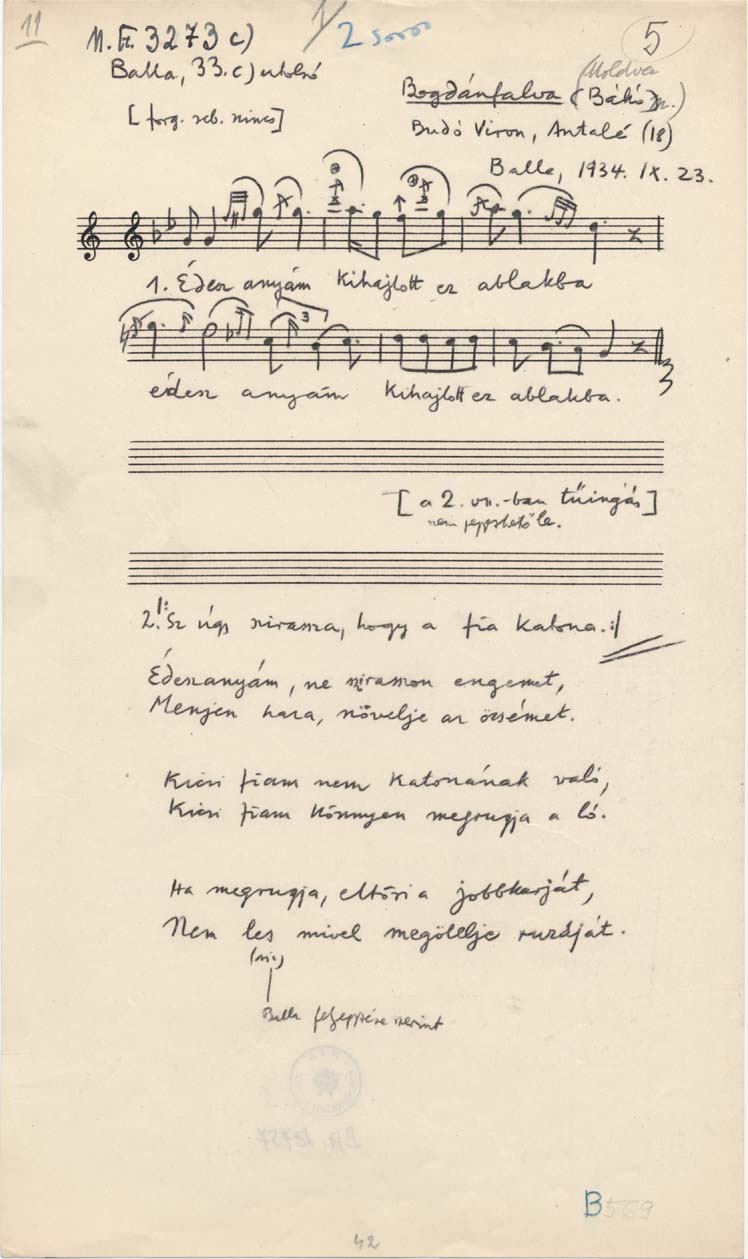 11
1/
2 soros
5
M. F. 3273 c)
Balla, 33. c) utolsó
(Moldva
Bogdánfalva (Bákó m.)
[forg. seb. nincs]
Budó Viron, Antalé (18)
Balla, 1934. IX. 23.
1. Édesz anyám Kihajlott ez ablakba
3
édesz anyám Kihajlott ez ablakba.
[a 2. vsz.-ban tűingás]
nem jegyezhető le.
2. |: Sz úgy szirassza, hogy a fia katona. :|
Édeszanyám, ne szirasszon engemet,
Menjen haza, növelje az öcsémet.
Kicsi fiam nem katonának való,
Kicsi fiam könnyen megrugja a ló.
Ha megrugja, eltöri a jobbkarját,
Nem les mivel megölelje ruzáját.
(sic)
Balla feljegyzése szerint
BR. 12757
B 569
42